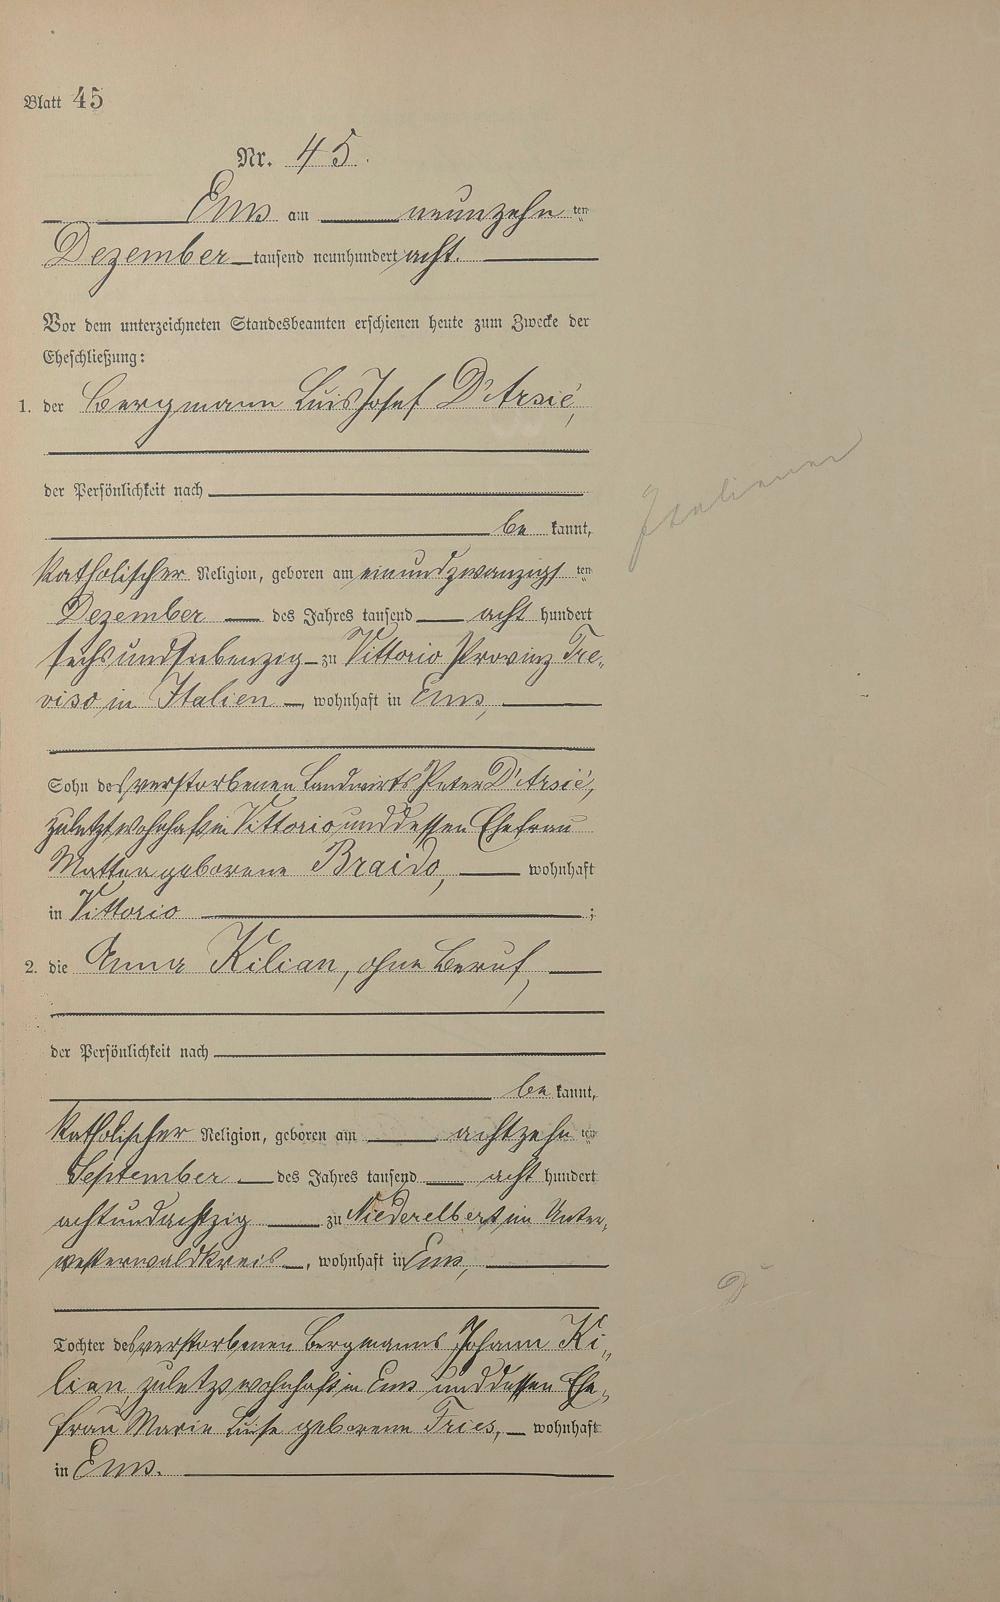 Blatt 45
Nr. 45.
Ems am neunzehn ten
Dezember tausend neunhundert acht.
Vor dem unterzeichneten Standesbeamten erschienen heute zum Zwecke der
Eheschließung:
1. der Bergmann Luis Josef D'Arsié,
der Persönlichkeit nach
be kannt,
Italiener
katholischer Religion, geboren am einundzwanzigs ten
Dezember des Jahres tausend acht hundert
sechsundsiebenzig zu Vittorio Provinz Tre-
viso in Italien, wohnhaft in Ems,
Sohn des verstorbenen Landwirts Peter D'Arsié,
zuletzt wohnhaft in Vittorio, und dessen Ehefrau
Mattea geborene Braido, wohnhaft
in Vittorio ;
2. die Anna Kilian, ohne Beruf,
der Persönlichkeit nach
be kannt,
katholischer Religion, geboren am achtzehn ten
September des Jahres tausend acht hundert
achtundachtzig zu Niederelbert im Unter-
westerwaldkreis, wohnhaft in Ems,
Tochter des verstorbenen Bergmanns Johann Ki-
lian, zuletzt wohnhaft in Ems und dessen Ehe-
frau Marie Luise geborenen Fries, wohnhaft
in Ems.